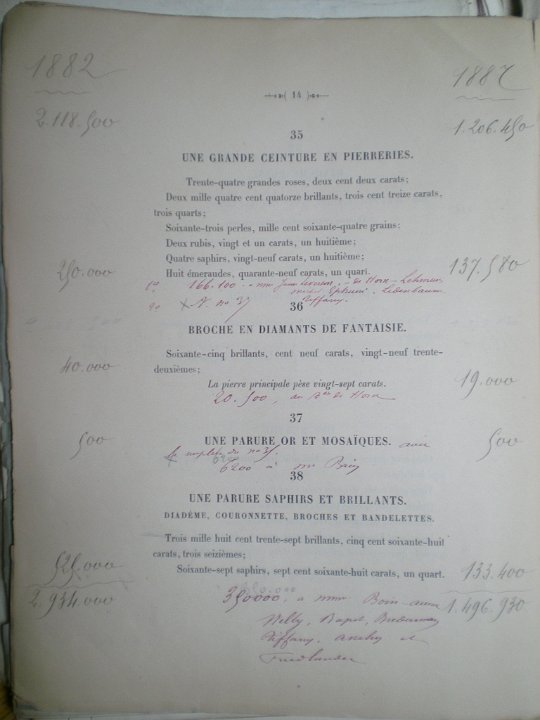 1882
1887
14
2.118.500
1.206.450
35
UNE GRANDE CEINTURE EN PIERRERIES.
Trente-quatre grandes roses, deux cent deux carats;
Deux mille quatre cent quatorze brillants, trois cent treize carats,
trois quarts;
Soixante-trois perles, mille cent soixante-quatre grains;
Deux rubis, vingt et un carats, un huitième;
Quatre saphirs, vingt-neuf carats, un huitième;
Huit émeraudes, quarante-neuf carats, un quart.
250.000
137.580
166.100
Tiffany.
No 37
36
BROCHE EN DIAMANTS DE FANTAISIE.
Soixante-cinq brillants, cent neuf carats, vingt-neuf trente-
deuxièmes;
40.000
19.000
La pierre principale pèse vingt-sept carats.
20.500,
37
UNE PARURE OR ET MOSAÏQUES. avec
500
500
6200 à mr Boin
38
UNE PARURE SAPHIRS ET BRILLANTS.
DIADÈME, COURONNETTE, BROCHES ET BANDELETTES.
Trois mille huit cent trente-sept brillants, cinq cent soixante-huit
carats, trois seizièmes;
Soixante-sept saphirs, sept cent soixante-huit carats, un quart.
525.000
133.400
2.934.000
1.496.930
350000, a mmr Boin avec
Bapst,
Tiffany, et
Friedlander